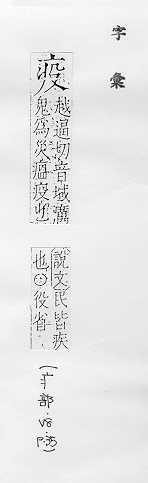 字彙
疫
越逼切音域癘
鬼爲災瘟疫
說文民皆疾
也○役省
(疒部